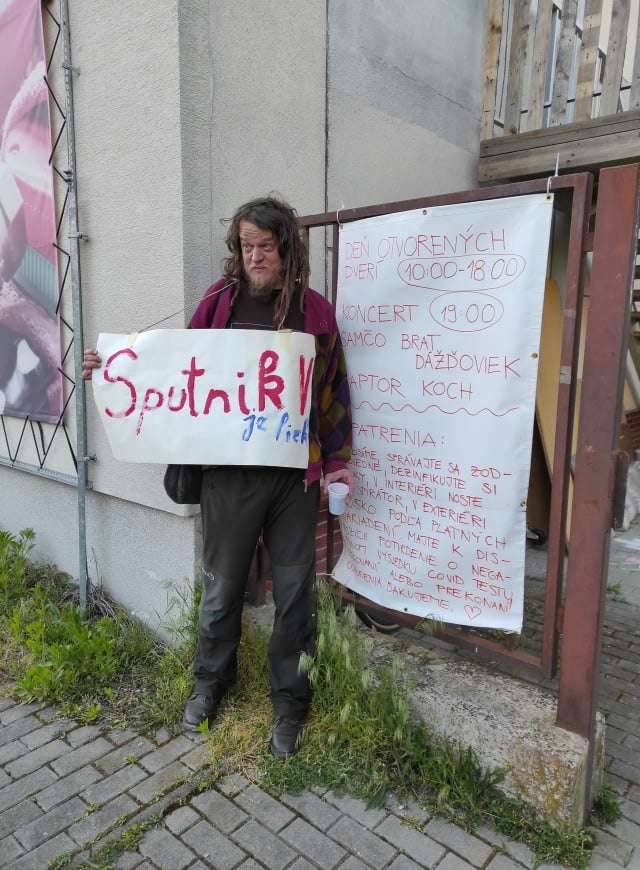 Sputnik V
je
DEŇ OTVORENÝCH
DVERÍ 10:00-18:00
KONCERT 19:00
SAMČO BRAT
DÁŽĎOVIEK
APTOR KOCH
PATRENIA:
SPRÁVAJTE SA ZOD-
DEZINFIKUJTE SI
V INTERIÉRI NOSTE
V EXTERIÉRI
PODĽA PLATNÝCH
MAJTE K DIS-
POTVRDENIE O NEGA-
VÝSLEDKU COVID TESTU
ALEBO PREKONANÍ
ĎAKUJEME.